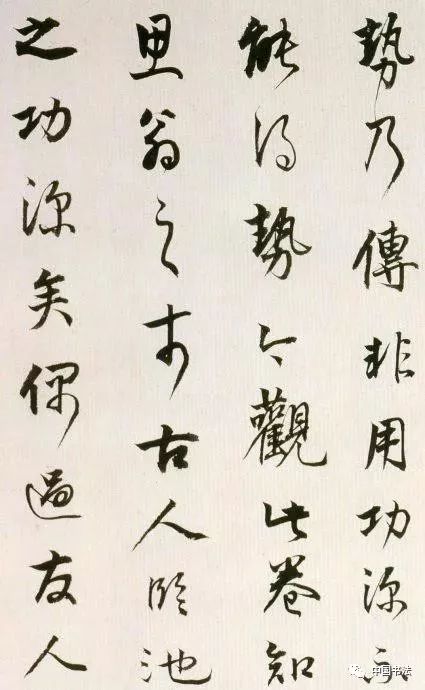 勢乃傳非用功深不
能得勢今觀此卷知
思翁之於古人臨池
之功深矣偶過友人
中国书法